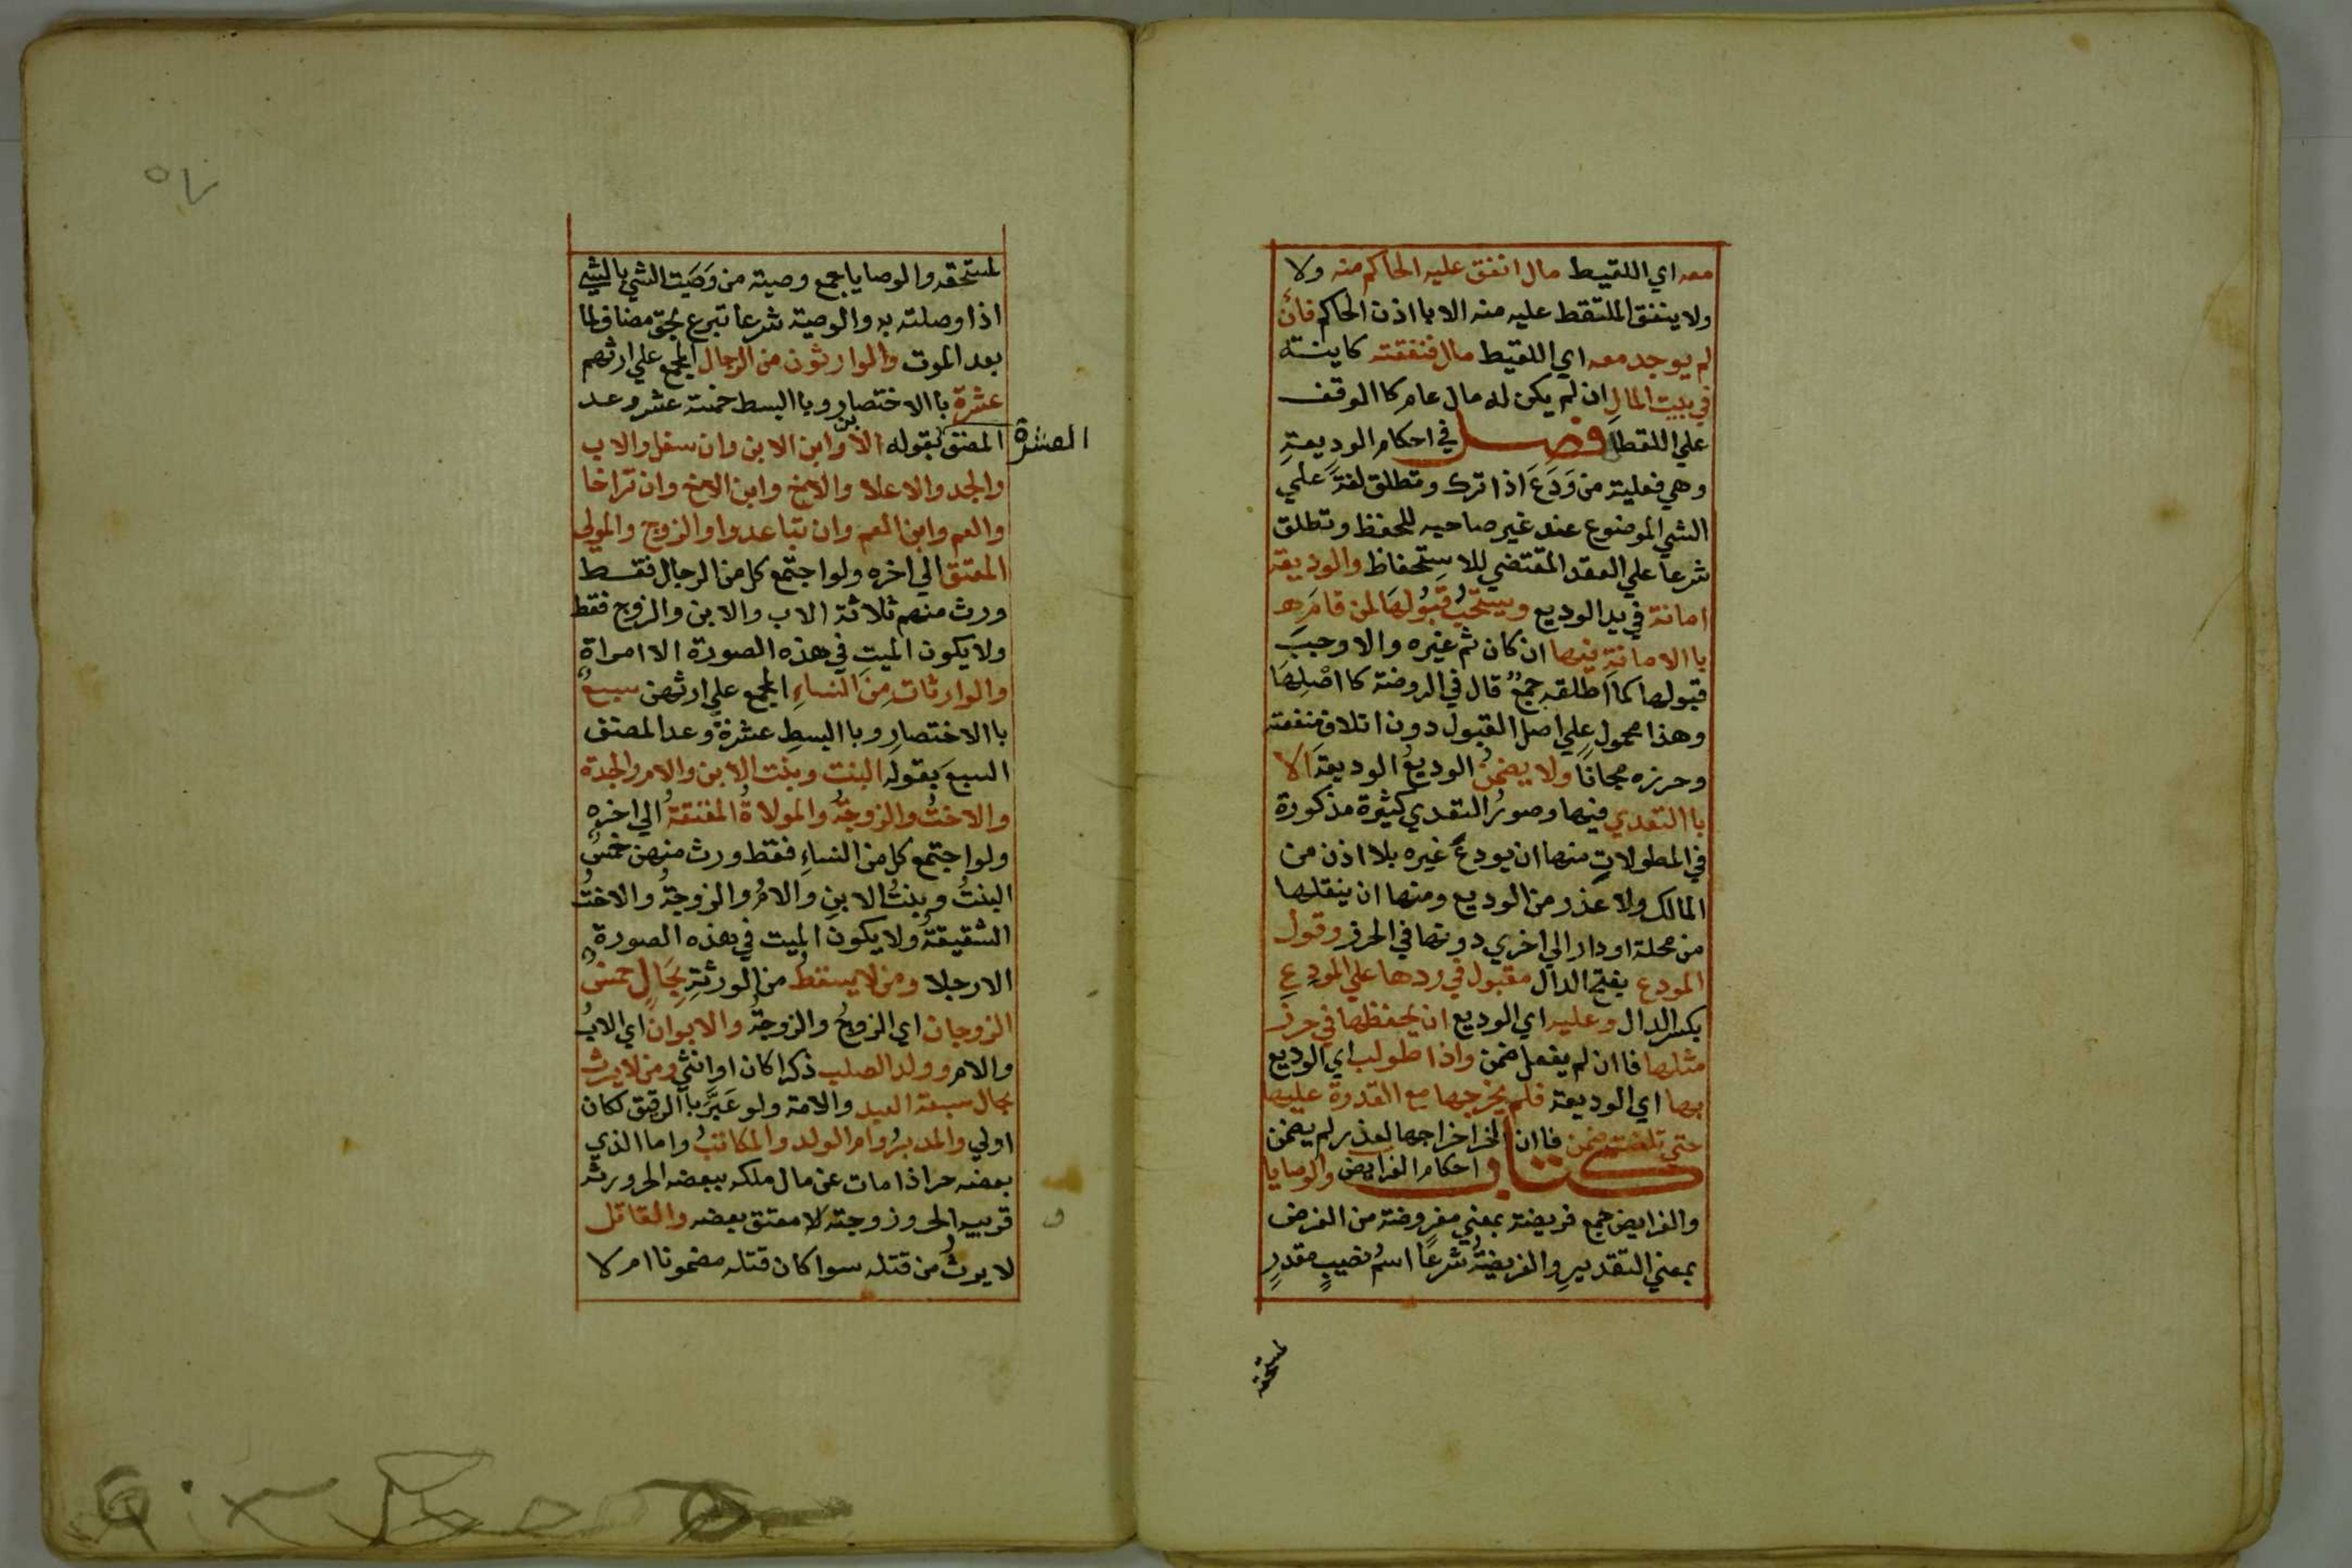 معه اي اللقيط مال انفق عليه الحاكم منه ولا
ولا ينفق الملتقط عليه منه الا باذن الحاكم فان
لم يوجد معه اي اللقيط مال فنفقته كاينة
في بيت المال ان لم يكن له مال عام كا الوقف
علي اللقطا فصل في احكام الوديعةِ
وهي فعلية من وَدَعَ اذا ترك وتطلق لغةً علي
الشي الموضوع عند غير صاحبه للحفظ وتطلق
شرعا علي العقد المقتضي للاستحفاظ والوديعة
امانة في يد الوديع ويستحبُ قبُولهَا لمن قامَ
با الامانةِ فيها ان كان ثم غيره والا وجبَ
قبولها كما اطلقه جمعٌ قال في الروضة كا اصْلِهَا
وهذا محمول علي اصل القبول دون اتلاف منفعته
وحرزه مجانًا ولا يضمنُ الوديعُ الوديعةَ الا
با التعدي فيها وصورُ التعدي كثيرة مذكورة
في المطولاتِ منها ان يودعَ غيره بلا اذن من
المالك ولا عذر من الوديع ومنها ان ينقلها
من محلة او دار الي اخري دونها في الحرز وقول
المودع بفتح الدال مقبول في ردها علي المودِعِ
بكسر الدال وعليه اي الوديع ان يحفظها في حرز
مثلها فا ان لم يفعل ضمن واذا طولب اي الوديع
بها اي الوديعة فلم يخرجها مع القدرة عليها
حتي تلفت ضمن فا ان اخر اخراجها لعذر لم يضمن
كتاب احكام الفرايض والوصايا
والفرايض جمع فريضة بمعني مفروضة من الفرض
بمعني التقديرِ والفريضةُ شرعًا اسمُ نصيبٍ مقدرٍ
لمستحقه
لمستحقه والوصايا جمع وصية من وَصَيت الشي بالشي
اذا وصلته به والوصية شرعا تبرع بحق مضاف لما
بعد الموت والوارثون من الرجال المجمع علي ارثهم
عشرة با الاختصار وبا البسط خمسة عشر وعد
المصنف العشرة بقوله الابن وابن الابن وان سفل والاب
والجد والاعلا والاخ وابن الاخ وان تراخا
والعم وابن العم وان تباعدوا والزوج والمولي
المعتق الي اخره ولو اجتمع كل من الرجال فقط
ورث منهم ثلاثة الاب والابن والزوج فقط
ولا يكون الميت في هذه الصورة الا امراة
والوارثات مِنَ النساءِ المجمع علي ارثهن سبعٌ
با الاختصارِ وبا البسطِ عشرةٌ وعد المصنف
السبعَ بقوله البنت وبنت الابن والام والجدة
والاختُ والزوجةُ والمولاةُ المعتقةُ الي اخره
ولو اجتمع كل من النساءِ فقط ورث منهن خمسٌ
البنتُ وبنتُ الابنِ والامُ والزوجةُ والاختُ
الشقيقةُ ولا يكون الميت في هذه الصورة
الا رجلا ومن لا يسقطُ من الورثةِ بحَالٍ خمسٌ
الزوجان اي الزوجُ والزوجةُ والابوان اي الابُ
والام وولد الصلب ذكرا كان او انثي ومن لا يرث
بحال سبعة العبد والامة ولو عَبَّرَ با الرقيق لكان
اولي والمدبرُ وام الولد والمكاتبُ واما الذي
بعضه حر اذا مات عن مال ملكه ببعضه الحر ورثه
قريبه الحر وزوجته لا معتق بعضه والقاتل
لا يرثُ من قتله سوا كان قتله مضمونا ام لا